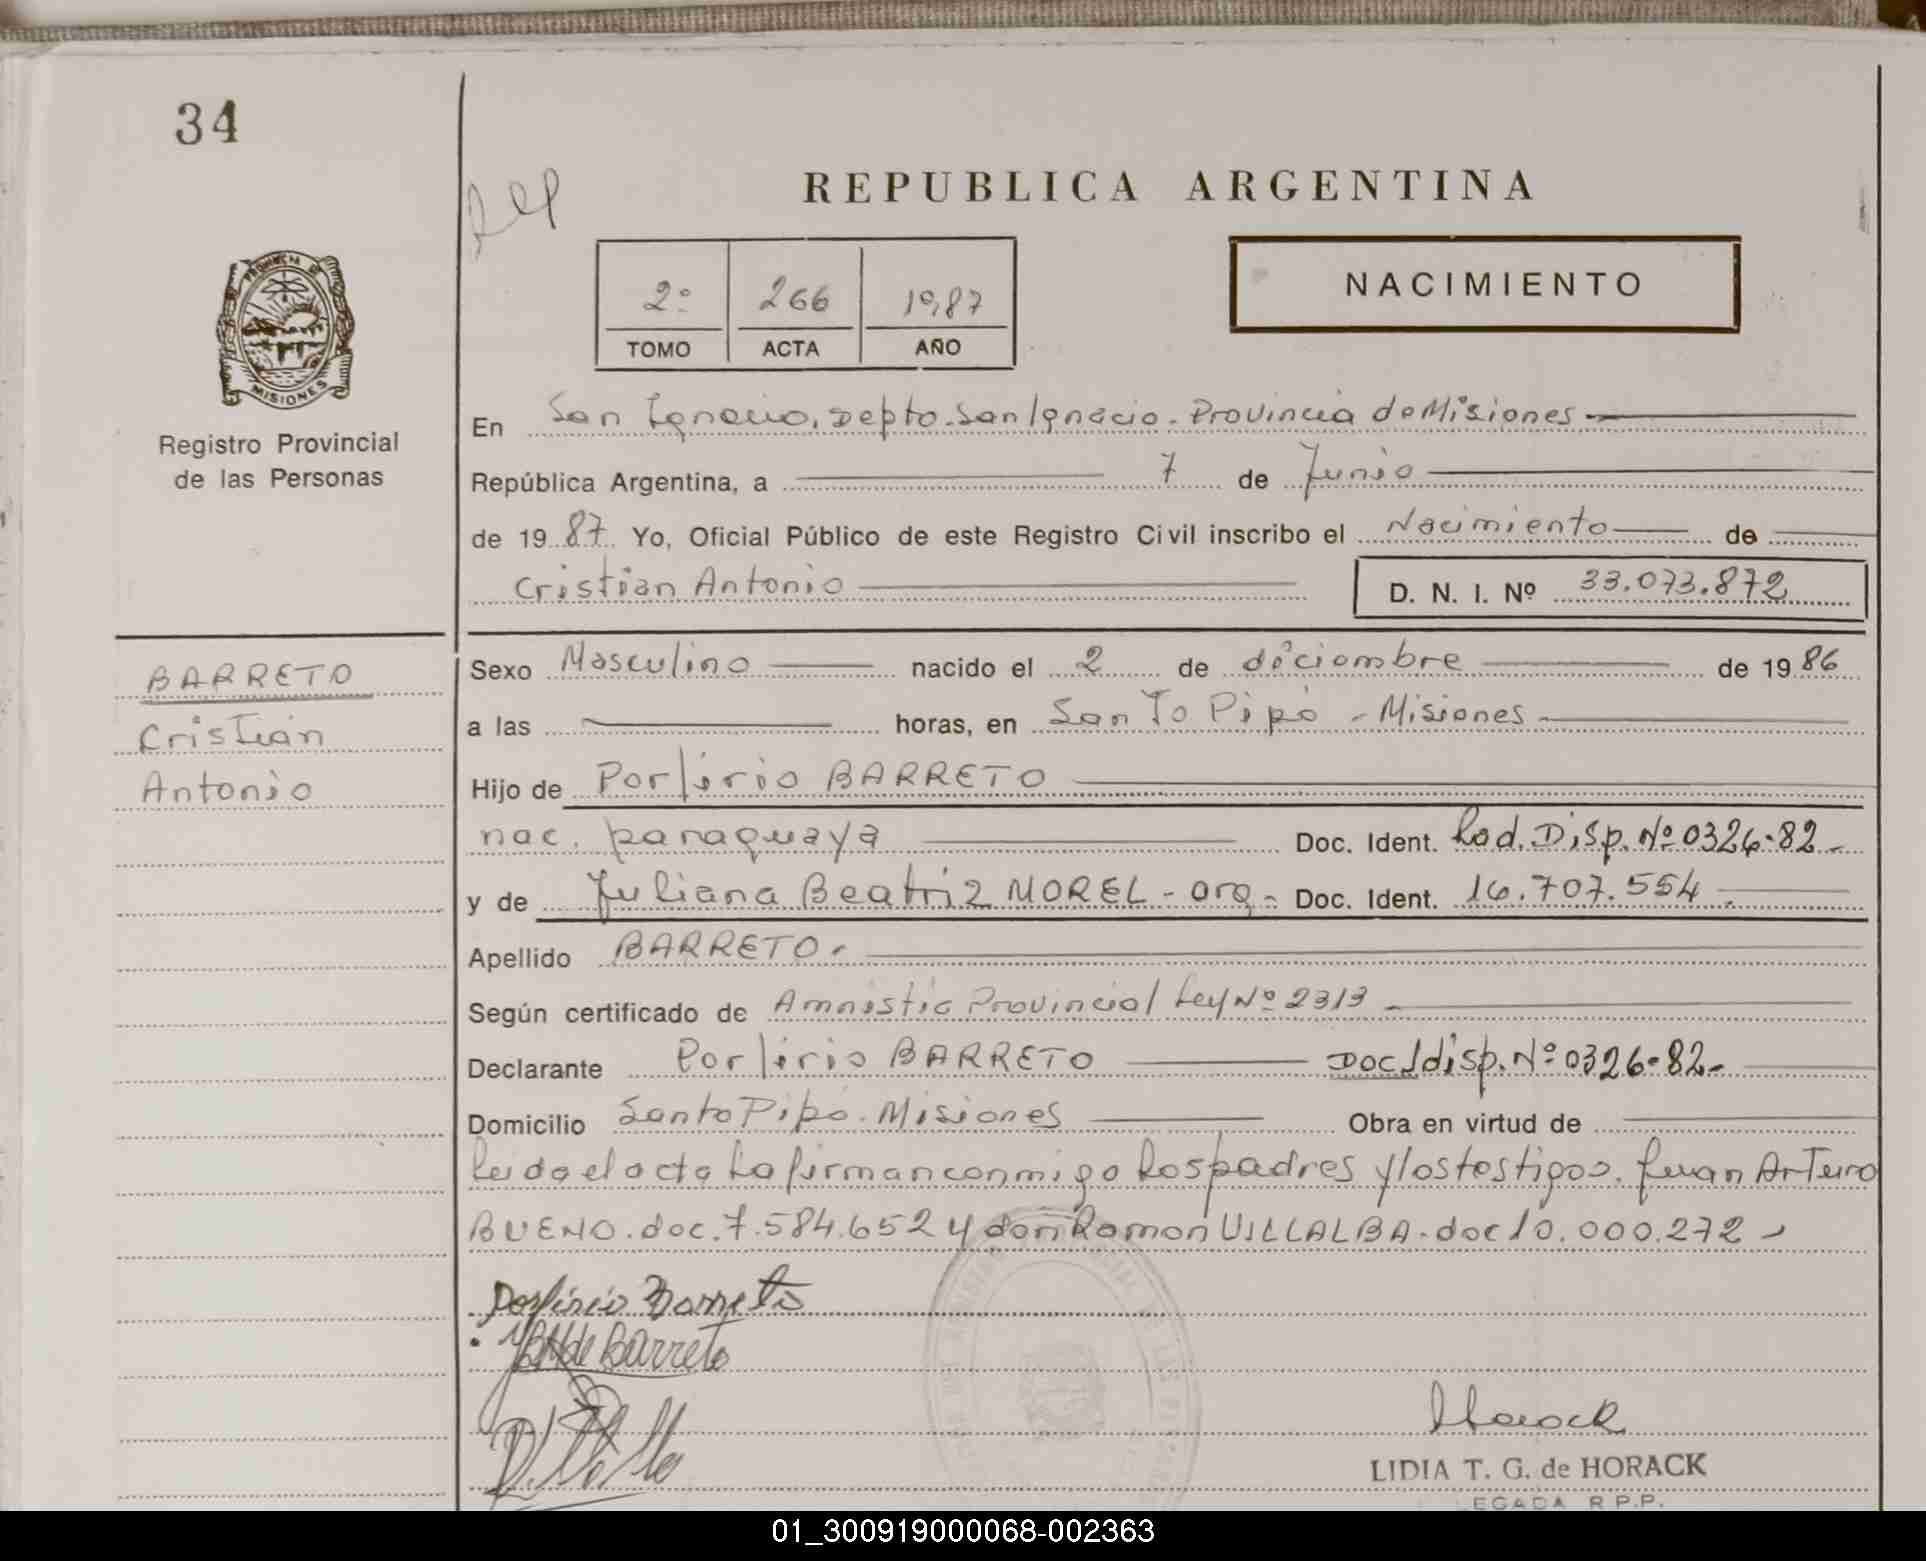 34
REPUBLICA ARGENTINA
2º 266 1987
TOMO ACTA AÑO
NACIMIENTO
PROVINCIA DE
MISIONES
Registro Provincial
de las Personas
En San Ignacio, Depto. San Ignacio. Provincia de Misiones
República Argentina, a 7 de Junio
de 1987 Yo, Oficial Público de este Registro Civil inscribo el Nacimiento de
Cristian Antonio D. N. I. Nº 33.073.872
BARRETO
Cristian
Antonio
Sexo Masculino nacido el 2 de diciembre de 1986
a las horas, en Santo Pipó - Misiones
Hijo de Porfirio BARRETO
nac. paraguaya Doc. Ident. Rad. Disp. Nº 0326-82-
y de Juliana Beatriz MOREL - arg - Doc. Ident. 16.707.554
Apellido BARRETO.
Según certificado de Amnistia Provincial Ley Nº 2313
Declarante Porfirio BARRETO Doc/disp. Nº 0326-82-
Domicilio Santo Pipó. Misiones Obra en virtud de
Leida el acta la firman conmigo los padres y los testigos. Juan Arturo
BUENO. doc. 7.584.652 y don Ramon VILLALBA. doc 10.000.272 -
Porfirio Barreto
de Barreto
Horack
LIDIA T. G. de HORACK
EGADA R.P.P.
01_300919000068-002363